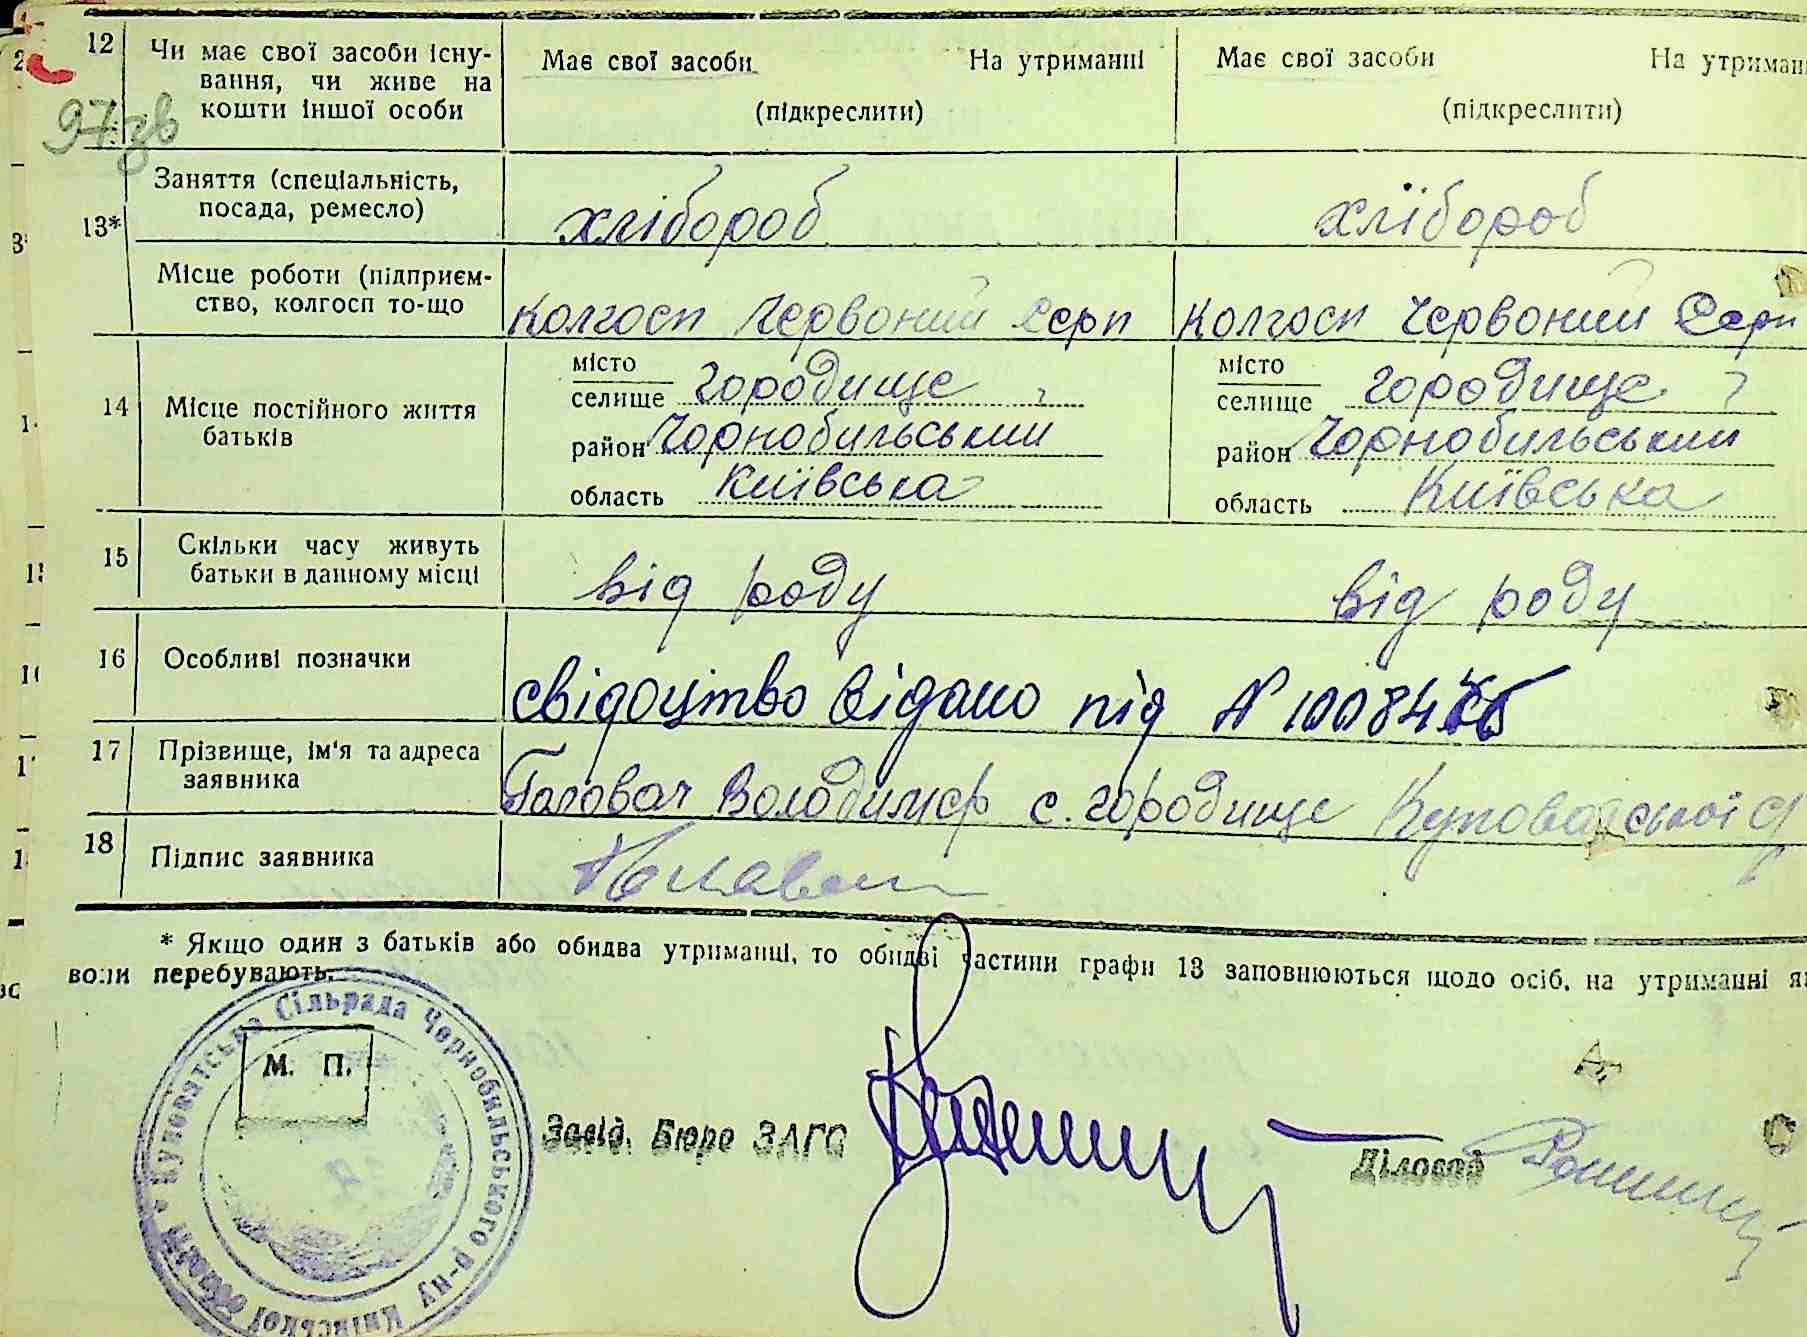 12 Чи має свої засоби існу- Має свої засоби На утриманні Має свої засоби На утриман
вання, чи живе на
кошти іншої особи (підкреслити) (підкреслити)
97 зв
Заняття (спеціальність,
посада, ремесло) хлібороб хлібороб
13*
Місце роботи (підприєм-
ство, колгосп то-що колгосп Червоний Серп колгосп Червоний Серп
місто місто
селище городище селище городище
14 Місце постійного життя
батьків район Чорнобильський район Чорнобильський
область Київська область Київська
15 Скільки часу живуть
батьки в данному місці від роду від роду
16 Особливі позначки свідоцтво відано під №
17 Прізвище, ім'я та адреса
заявника Головач Володимир с. городище
18 Підпис заявника
* Якщо один з батьків або обидва утриманці, то обидві частини графи 13 заповнюються щодо осіб, на утриманні як
вони перебувають.
Куповатська Сільрада Чорнобильського р-ну Київської області
М. П.
Завід. Бюро ЗАГС
Діловод